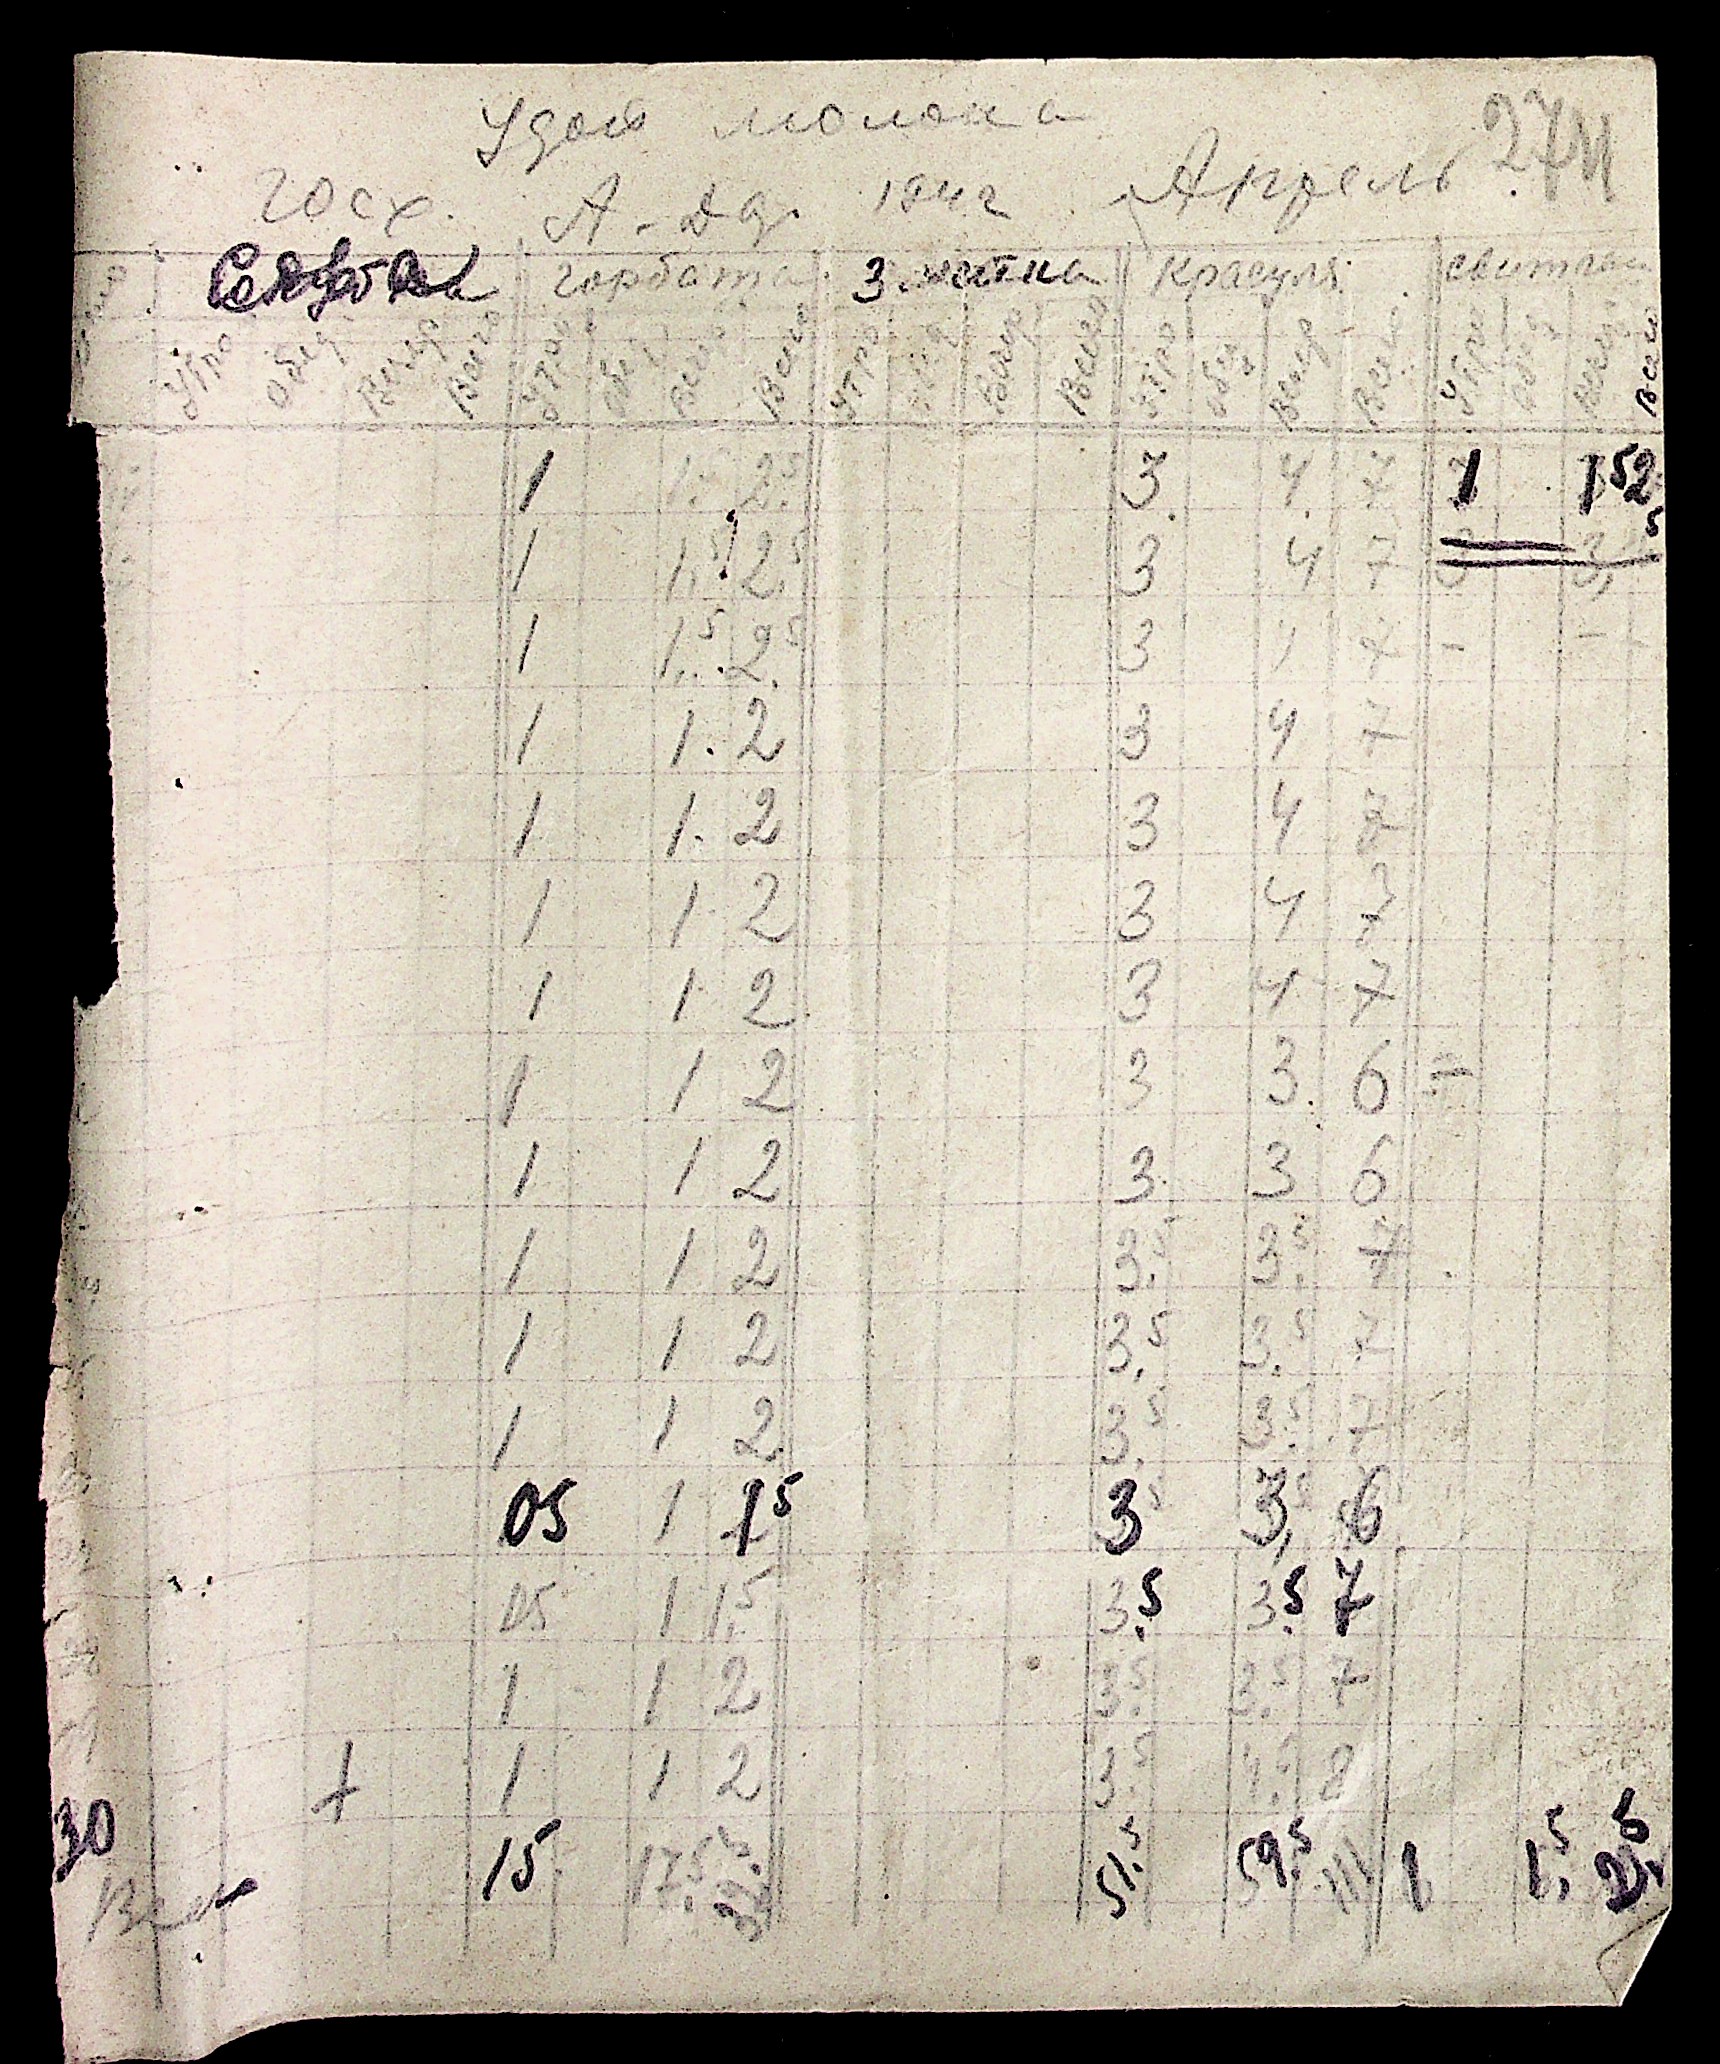 Удой молока
27 II
госх. А-Да. 1942 Апрель
Горбата Змитка Красуля Свитлая
Утро Обед Вечер Всего Утро Обед Вечер Всего Утро Обед Вечер Всего Утро Обед Вечер Всего Утро Обед Вечер Всего
1 1. 2.5 3 4 7 1 1 5 2. 5
1 1.5 2.5 3 4 7 3 3,
1 1.5 2.5 3 4 7 - - -
1 1. 2 3 4 7
1 1. 2 3 4 7
1 1 2 3 4 7
1 1 2 3 4 7
1 1 2 3 3 6 -
1 1 2 3 3 6
1 1 2 3.5 3.5 7
1 1 2 3.5 3.5 7
1 1 2 3.5 3.5 7
05 1 1 5 3 3, 6
05 1 1.5 3.5 3.5 7
1 1 2 3.5 3.5 7
+ 1 1 2 3.5 4.5 8
30
Всего 15 17.5 32.5 51.5 59.5 111 1 1.5 2.5